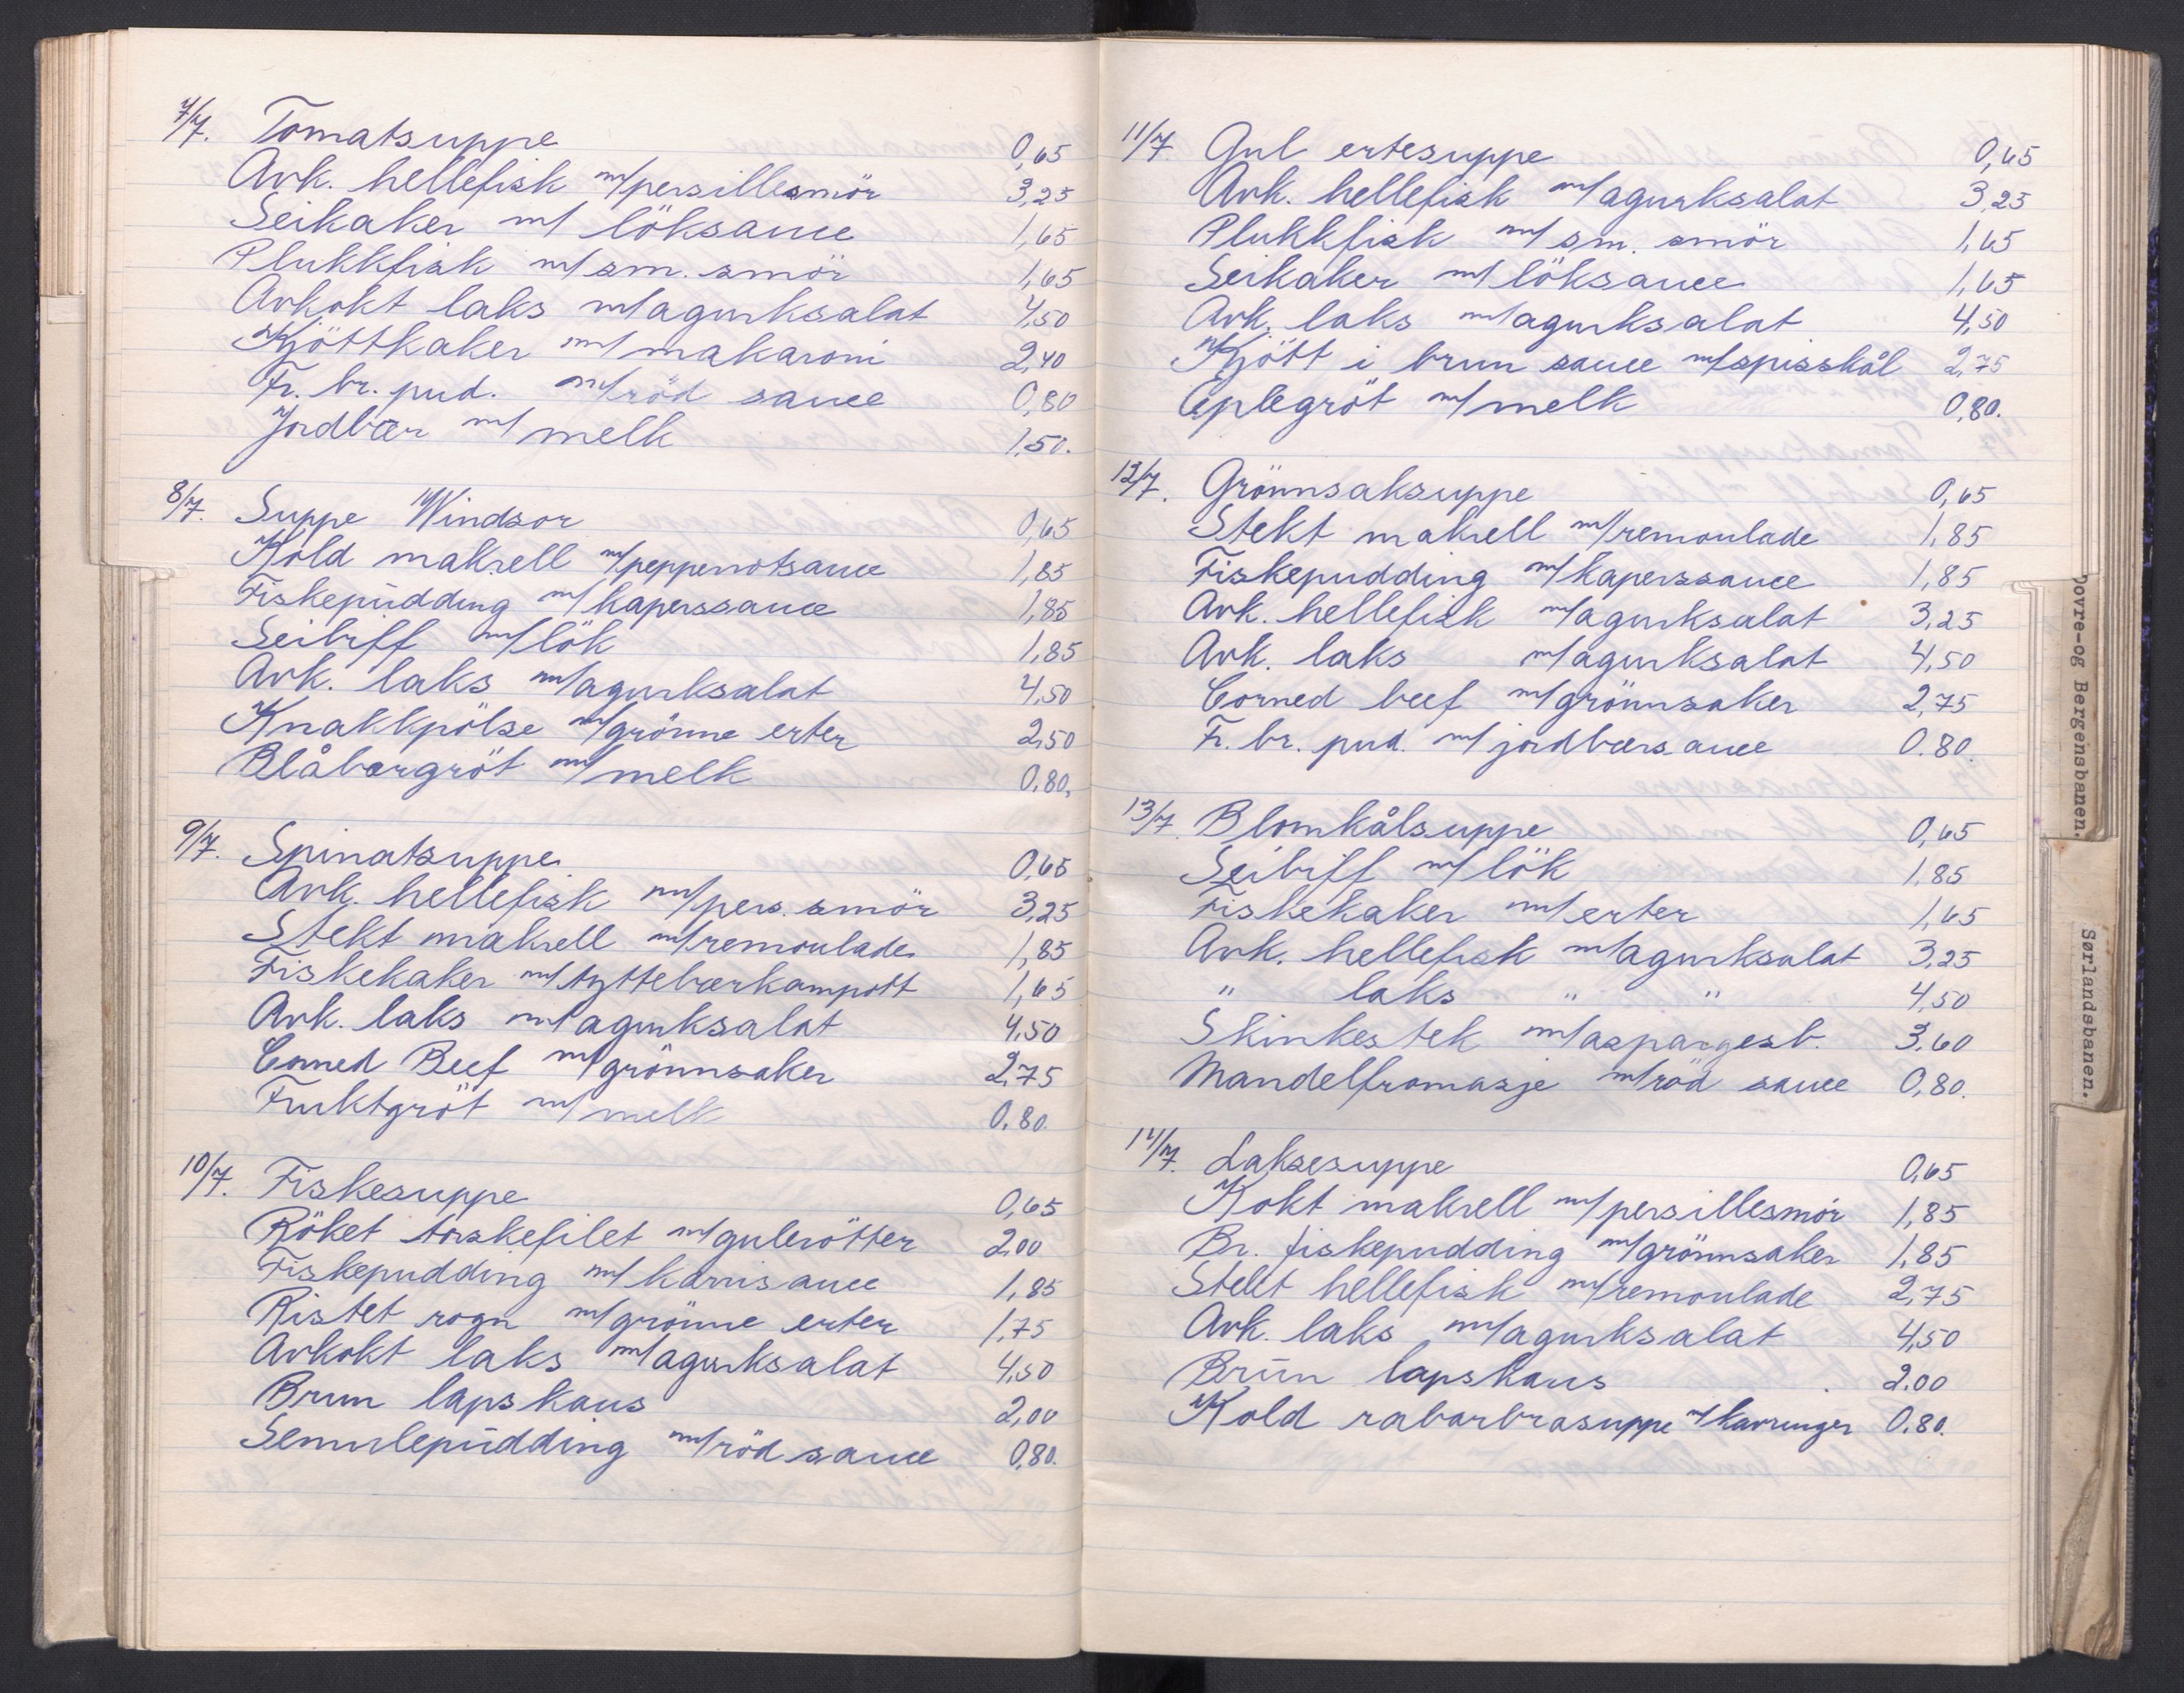 7/7. Tomatsuppe 0,65
Avk. hellefisk m/persillesmör 3,25
Seikaker m/ löksauce 1,65
Plukkfisk m/sm. smör 1,65
Avkokt laks m/agurksalat 4,50
Kjöttkaker m/makaroni 2,40
Fr. br. pud. m/röd sauce 0,80
Jordbær m/ melk 1,50.
8/7. Suppe Windsor 0,65
Kold makrell m/pepperrotsauce 1,85
Fiskepudding m/kaperssauce 1,85
Seibiff m/lök 1,85
Avk. laks m/agurksalat 4,50
Knakkpölse m/grönne erter 2,50
Blåbærgröt m/melk 0,80,
9/7. Spinatsuppe 0,65
Avk. hellefisk m/pers. smör 3,25
Stekt makrell m/remoulade 1,85
Fiskekaker m/tyttebærkompott 1,65
Avk. laks m/agurksalat 4,50
Corned Beef m/grönnsaker 2,75
Fruktgröt m/melk 0,80.
10/7. Fiskesuppe 0,65
Röket torskefilet m/gulerötter 2,00
Fiskepudding m/karrisauce 1,85
Ristet rogn m/grönne erter 1,75
Avkokt laks m/agurksalat 4,50
Brun lapskaus 2,00
Semulepudding m/röd sauce 0,80.
11/7 Gul ertesuppe 0,65
Avk. hellefisk m/agurksalat 3,25
Plukkfisk m/sm. smör 1,65
Seikaker m/löksauce 1,65
Avk. laks m/agurksalat 4,50
Kjött i brun sauce m/spisskål 2,75
Eplegröt m/melk 0,80.
12/7. Grönnsaksuppe 0,65
Stekt makrell m/remoulade 1,85
Fiskepudding m/kaperssauce 1,85
Avk. hellefisk m/agurksalat 3,25
Avk. laks m/agurksalat 4,50
Corned beef m/grönnsaker 2,75
Fr. br. pud. m/jordbærsauce 0.80.
13/7. Blomkålsuppe 0,65
Seibiff m/lök 1,85
Fiskekaker m/erter 1,65
Avk. hellefisk m/agurksalat 3,25
" laks " " 4,50
Skinkestek m/aspargesb. 3,60
Mandelfromasje m/röd sauce 0,80.
14/7. Laksesuppe 0,65
Kokt makrell m/persillesmör 1,85
Br. fiskepudding m/grönnsaker 1,85
Stekt hellefisk m/remoulade 2,75
Avk. laks m/agurksalat 4,50
Brun lapskaus 2.00
Kold rabarbrasuppe m/kavringer 0.80.
Dovre-og Bergensbanen.
Sørlandsbanen.